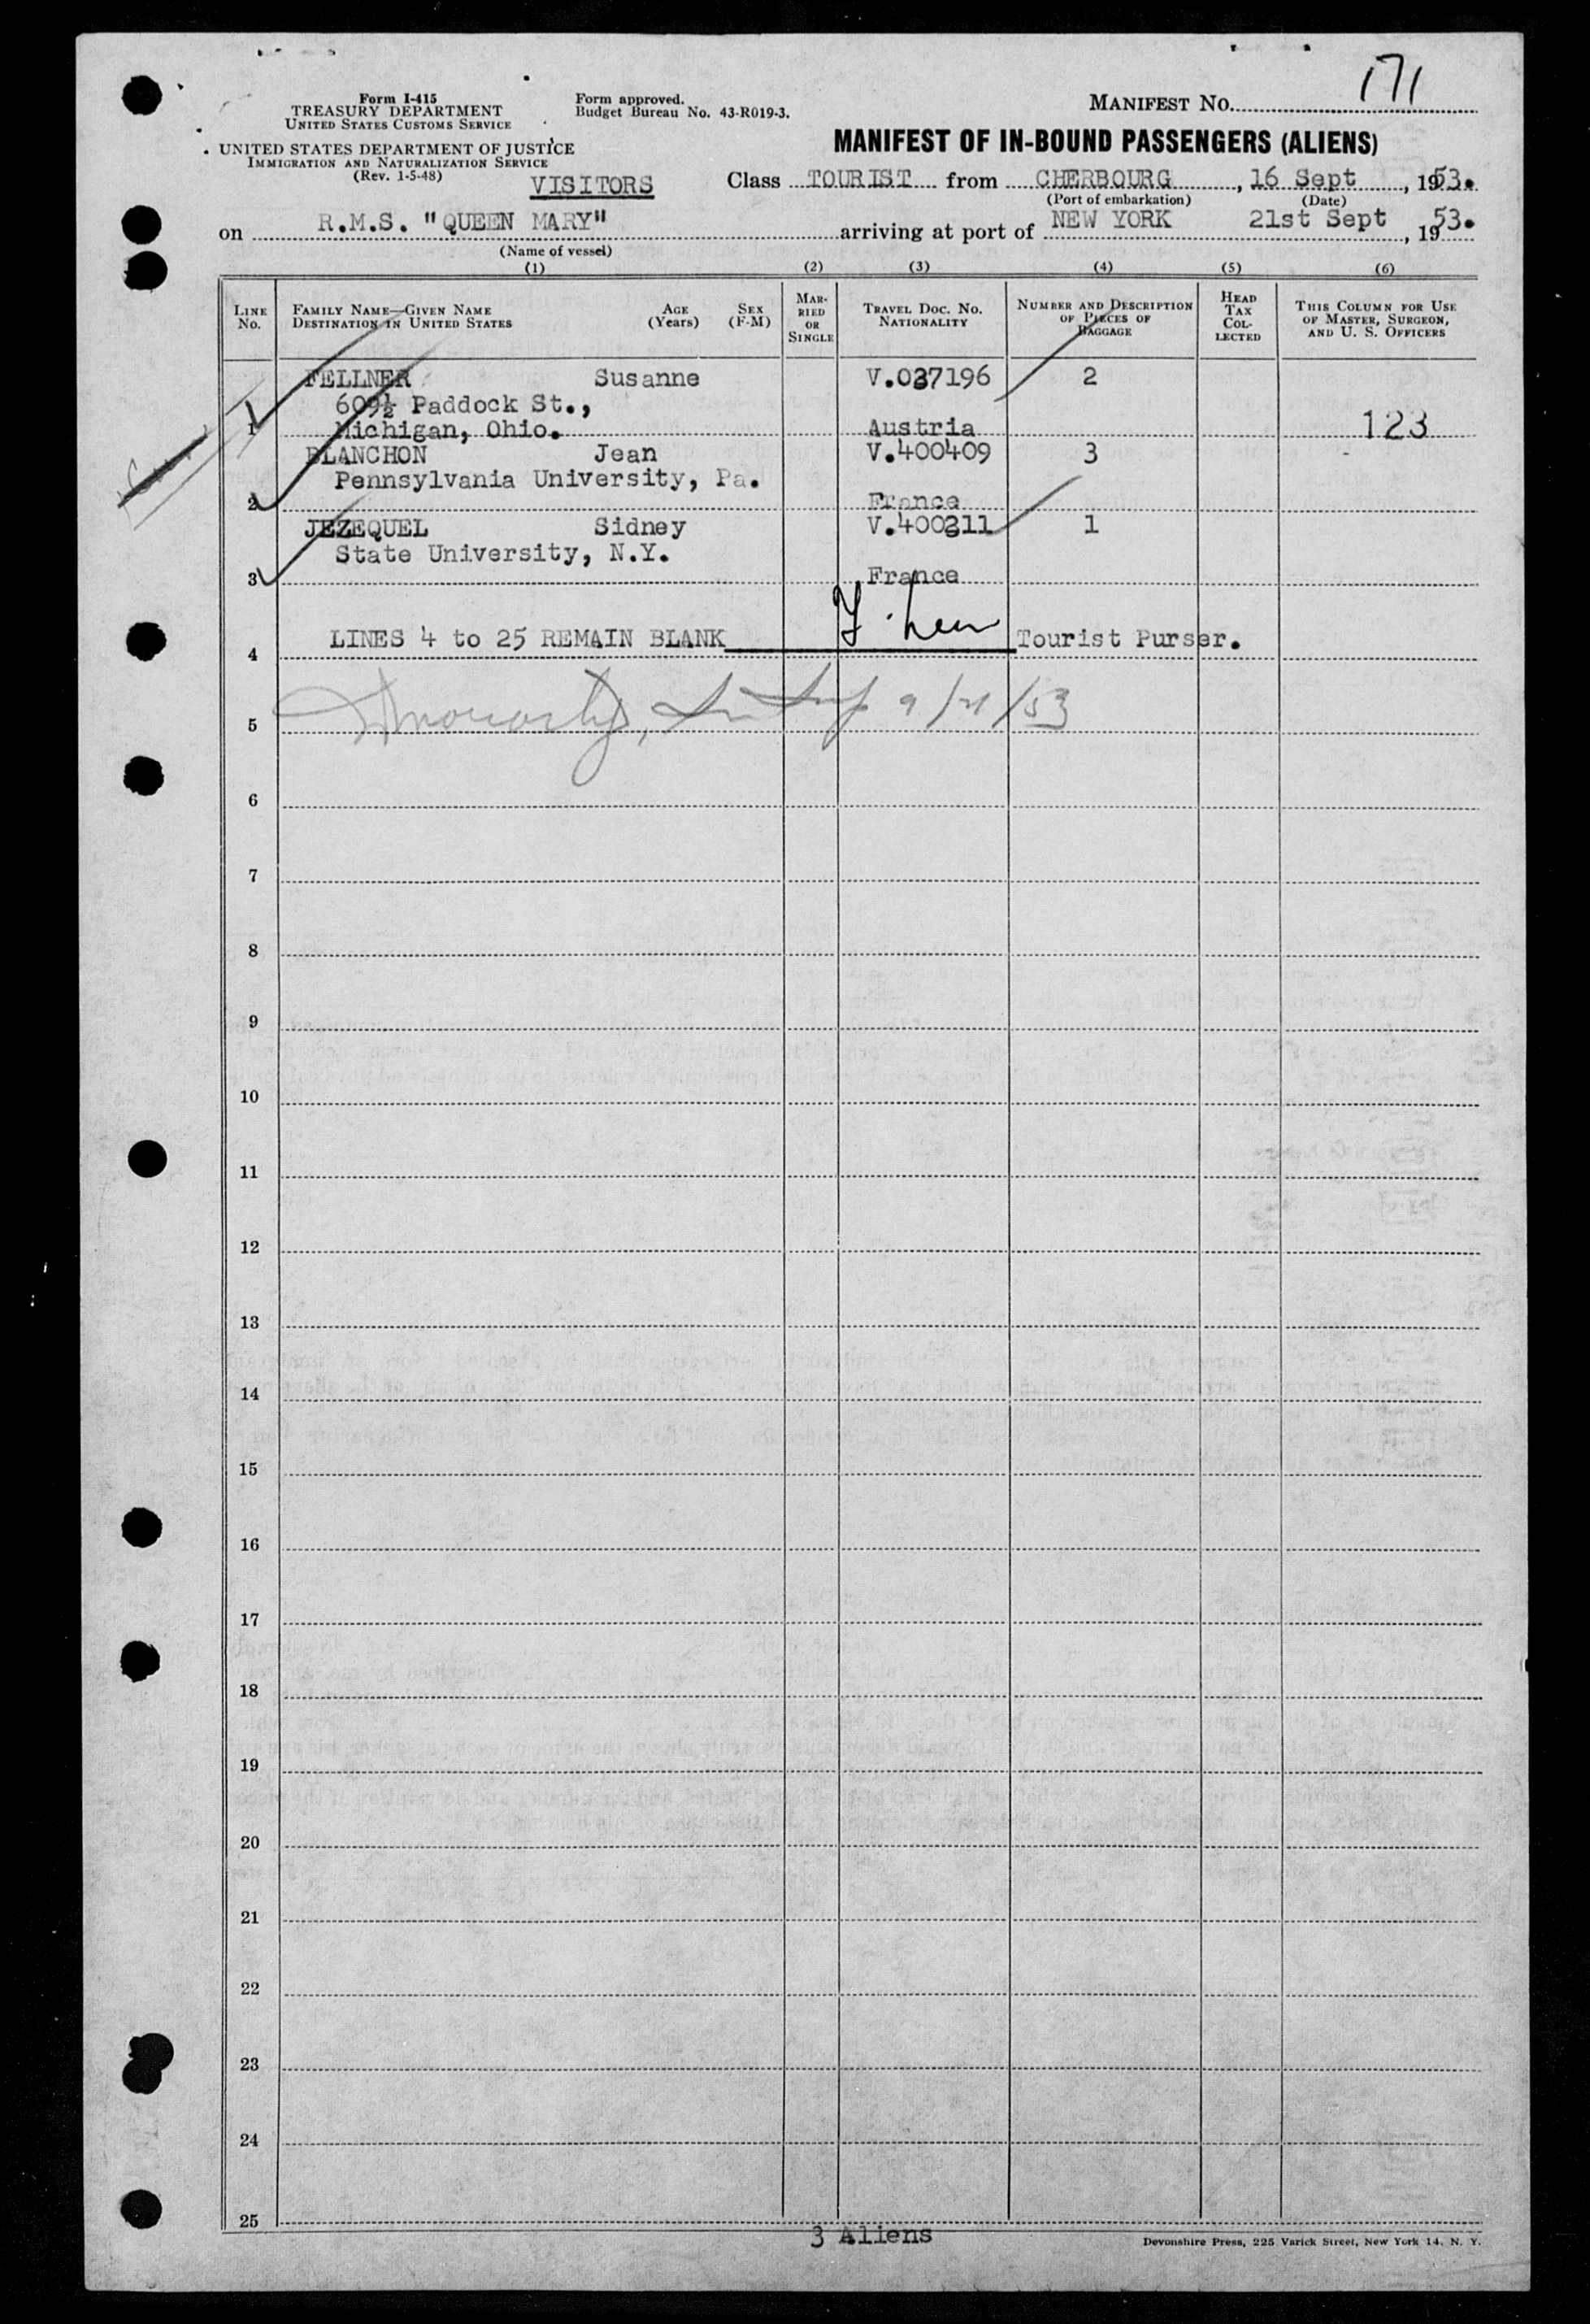 171
Form I-415
TREASURY DEPARTMENT
UNITED STATES CUSTOMS SERVICE
Form approved.
Budget Bureau No. 43-R019-3.
MANIFEST NO.
UNITED STATES DEPARTMENT OF JUSTICE
IMMIGRATION AND NATURALIZATION SERVICE
(Rev. 1-5-48)
MANIFEST OF IN-BOUND PASSENGERS (ALIENS)
VISITORS
Class TOURIST from CHERBOURG, 16 Sept, 1953.
(Port of embarkation) (Date)
on R.M.S. "QUEEN MARY" arriving at port of NEW YORK 21st Sept, 1953.
(Name of vessel)
(1) (2) (3) (4) (5) (6)
LINE NO.
FAMILY NAME—GIVEN NAME
DESTINATION IN UNITED STATES
AGE (Years)
SEX (F-M)
MARRIED OR SINGLE
TRAVEL DOC. NO.
NATIONALITY
NUMBER AND DESCRIPTION
OF PIECES OF
BAGGAGE
HEAD
TAX
COLLECTED
THIS COLUMN FOR USE
OF MASTER, SURGEON,
AND U. S. OFFICERS
FELLNER Susanne V.037196 2
609½ Paddock St.,
1 Michigan, Ohio. Austria 123
BLANCHON Jean V.400409 3
Pennsylvania University, Pa.
2 France
JEZEQUEL Sidney V.400311 1
State University, N.Y.
3 France
4 LINES 4 to 25 REMAIN BLANK Tourist Purser.
5 9/21/53
6
7
8
9
10
11
12
13
14
15
16
17
18
19
20
21
22
23
24
25
3 Aliens
Devonshire Press, 225 Varick Street, New York 14, N. Y.